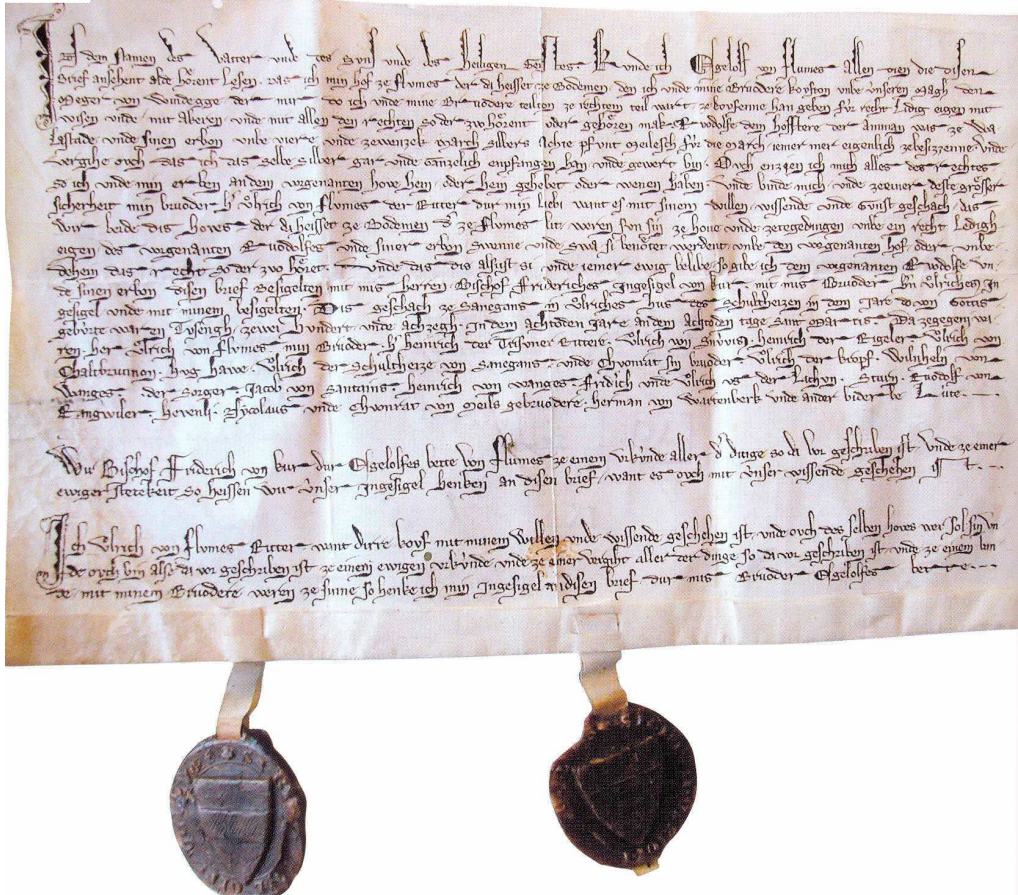 In dem Namen des Vatter vnde des Svns vnde des Heiligen Geistes kvnde ich Egelolf von Flvmes allen dien die disen
Brief ansehent alde hôrent lesen. Das ich min hof ze Flvmes der da heisset ze Bodemen den ich vnde mine Brvdere kovfton vmbe vnseren Magh den
Meger von Windegge der mir do ich vnde mine Brvodere teilton ze rechtem teil wart ze kovfenne han geben fvr recht ledig eigen mit
wisen vnde mit akeren vnde mit allen den rechten so der zvo hôrent oder gehôren mak Rvodolfe dem Hofstere der Amman was ze Wa
lastade vnde sinen erbon vmbe vierv vnde zewenzek march silbers achte pfvnt Meilesch fvr die march iemer mer eigenlich ze besizzenne vnde
vergihe ovch das ich das selbe silber gar vnde ganzelich enpfangen han vnde gewert bin. Ovch enzien ich mich alles des rechtes
so ich vnde min erben an dem vorgenanten hove hein oder hein gehebet oder wenen haben. Vnde binde mich vnde ze einer deste grôsser
sicherheit min brvoder h. Vlrich von Flvmes der Ritter dvr min liebi want es mit sinem willen wissende vnde gvnst geschach das
wir beide dis hoves der da heisset ze Bodemen d' ze Flvmes lit weren son sin ze hove vnde ze tegedingen vmbe ein recht ledigh
eigen des vorgenanten Rvodolfes vnde siner erbon swenne vnde swa si benôtet werdent vmbe den vorgenanten hof oder vmbe
dehein das recht so der zvo hôret. Vnde das dis alsvst si vnde iemer ewig belibe so gibe ich dem vorgenanten Rvodolfe vn
de sinen erbon disen brief besigelten mit mis herren Bischof Frideriches Ingesigel von Kur mit mis Brvoder hn Vlriches In
gesigel vnde mit minem besigelten. Dis geschach ze Sanegans in Vlriches hus des Schultheizen in dem Jare do von Gottis
gebvrte waren Tvsengh zewei hvndert vnde achzegh in dem achtoden Jare an dem achtoden tage Sant Martis. Da zegegem wa
ren her Vlrich von Flvmes min Brvoder h' Heinrich der Trisoner Rittere Vlrich von heinrich der Rigeler Vlrich von
Chaltbrvnnon Hvg Hawe Vlrich der Schultheize von Sanegans vnde Chvonrat sin brvoder Vlrich der kropf Wilnheln von
Wanges der Sorger Jacob von Santains Heinrich von Wanges Fridich vnde Vlrich vs der Lichvn Stvrn Rvodolf von
Rangwiler Hevenli Nycolaus vnde Chvonrat von Meils gebrvodere Herman von Wartenberk vnde ander biderbe Lute
Wir Bischof Friderich von kur dur Egelolfes bette von Flvmes ze einem vrkvnde aller d' dinge so da vor geschriben ist vnde ze einer
ewiger stetekeit so heissen wir vnser Ingesigel henken an disen brief want es ovch mit vnser wissende geschehen ist
Ich Vlrich von Flvmes Ritter want dirre kovf mit minem willen vnde wissende geschehen ist vnde ovch des selben hoves wer sol sin vn
de ovch bin als da vor geschriben ist ze einem ewigen vrkvnde vnde ze einer vergiht aller der dinge so da vor geschriben ist vnde ze einem bin
de mit minem Brvodere weren ze sinne so henke ich min Ingesigel an disen brief dur mis Brvoder Egelolfes bette